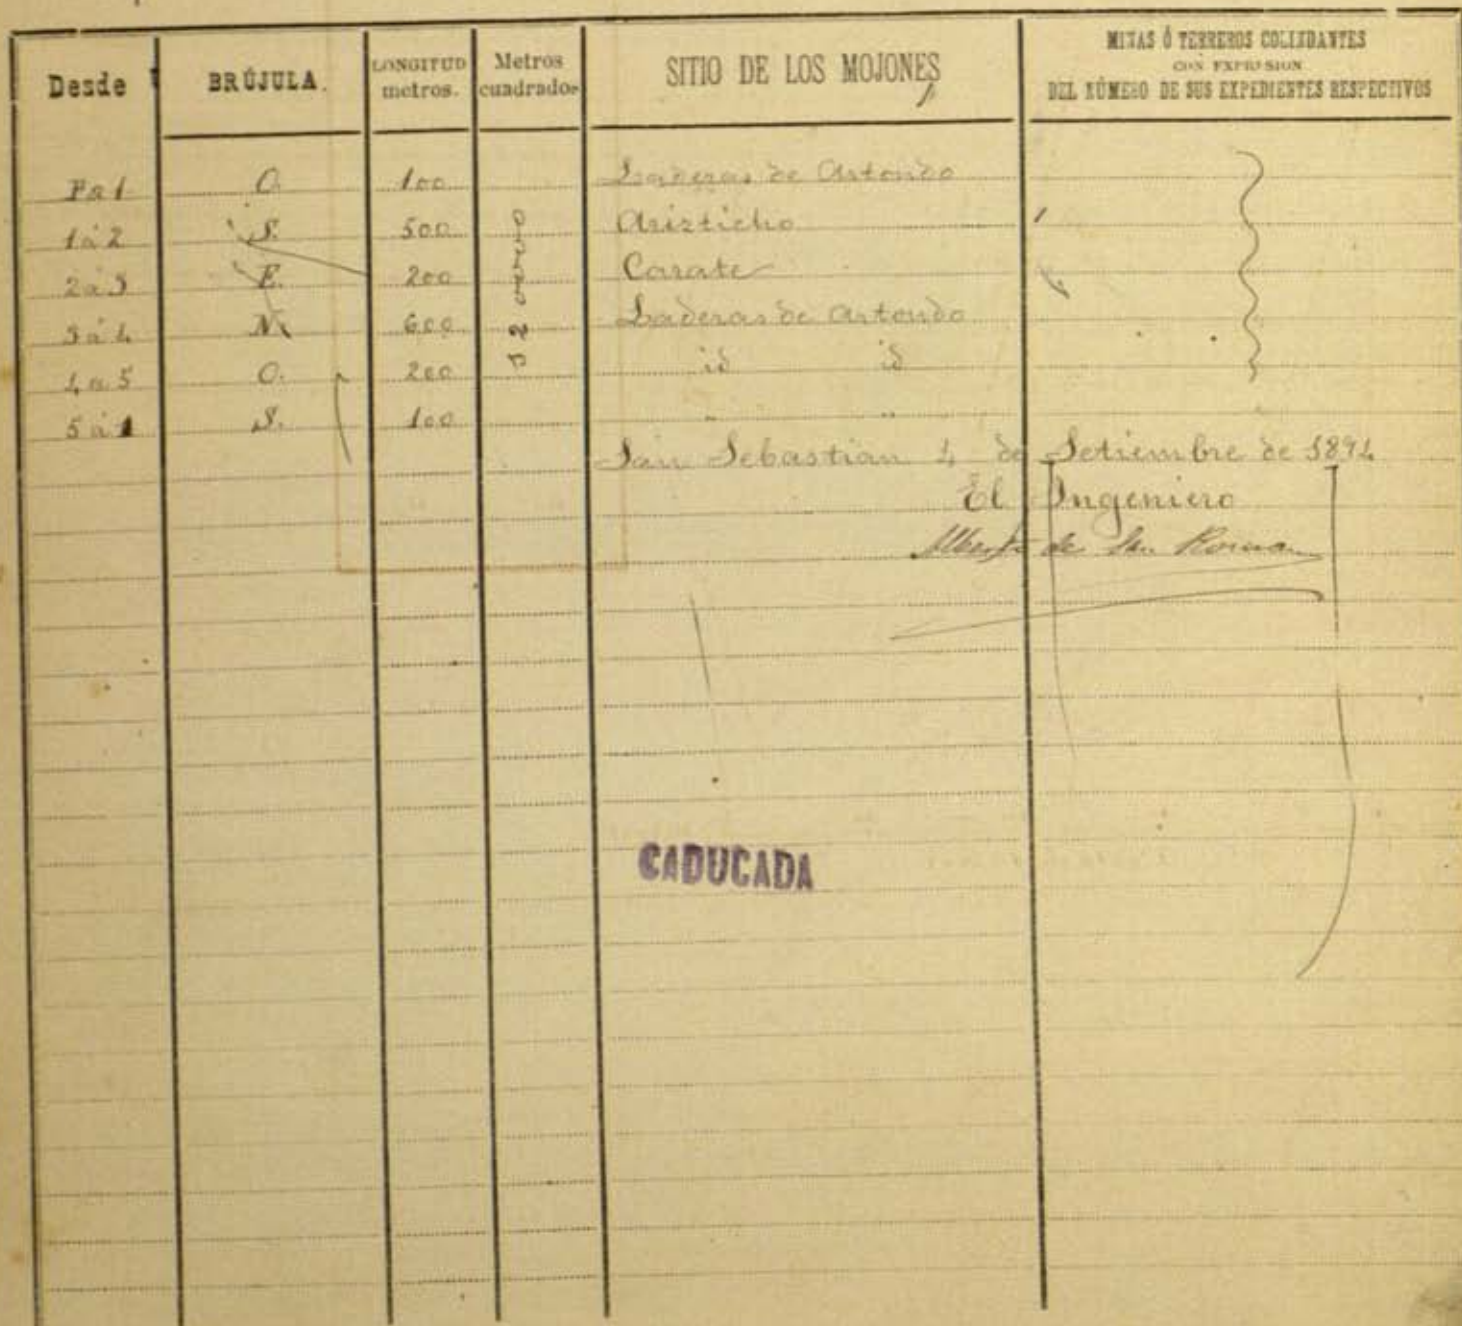 Desde BRÚJULA. LONGITUD metros. Metros cuadrados SITIO DE LOS MOJONES MINAS Ó TERREROS COLINDANTES CON EXPRESION DEL NÚMERO DE SUS EXPEDIENTES RESPECTIVOS
P a 1 O. 100 Laderas de Artondo
1 á 2 S. 500 Arizticho
2 a 3 E. 200 Carate
3 a 4 N. 600 Laderas de Artondo
4 a 5 O. 200 id id
5 á 1 S. 100 " "
San Sebastian 4 de Setiembre de 1894
El Ingeniero
Alberto de San Roman
CADUCADA